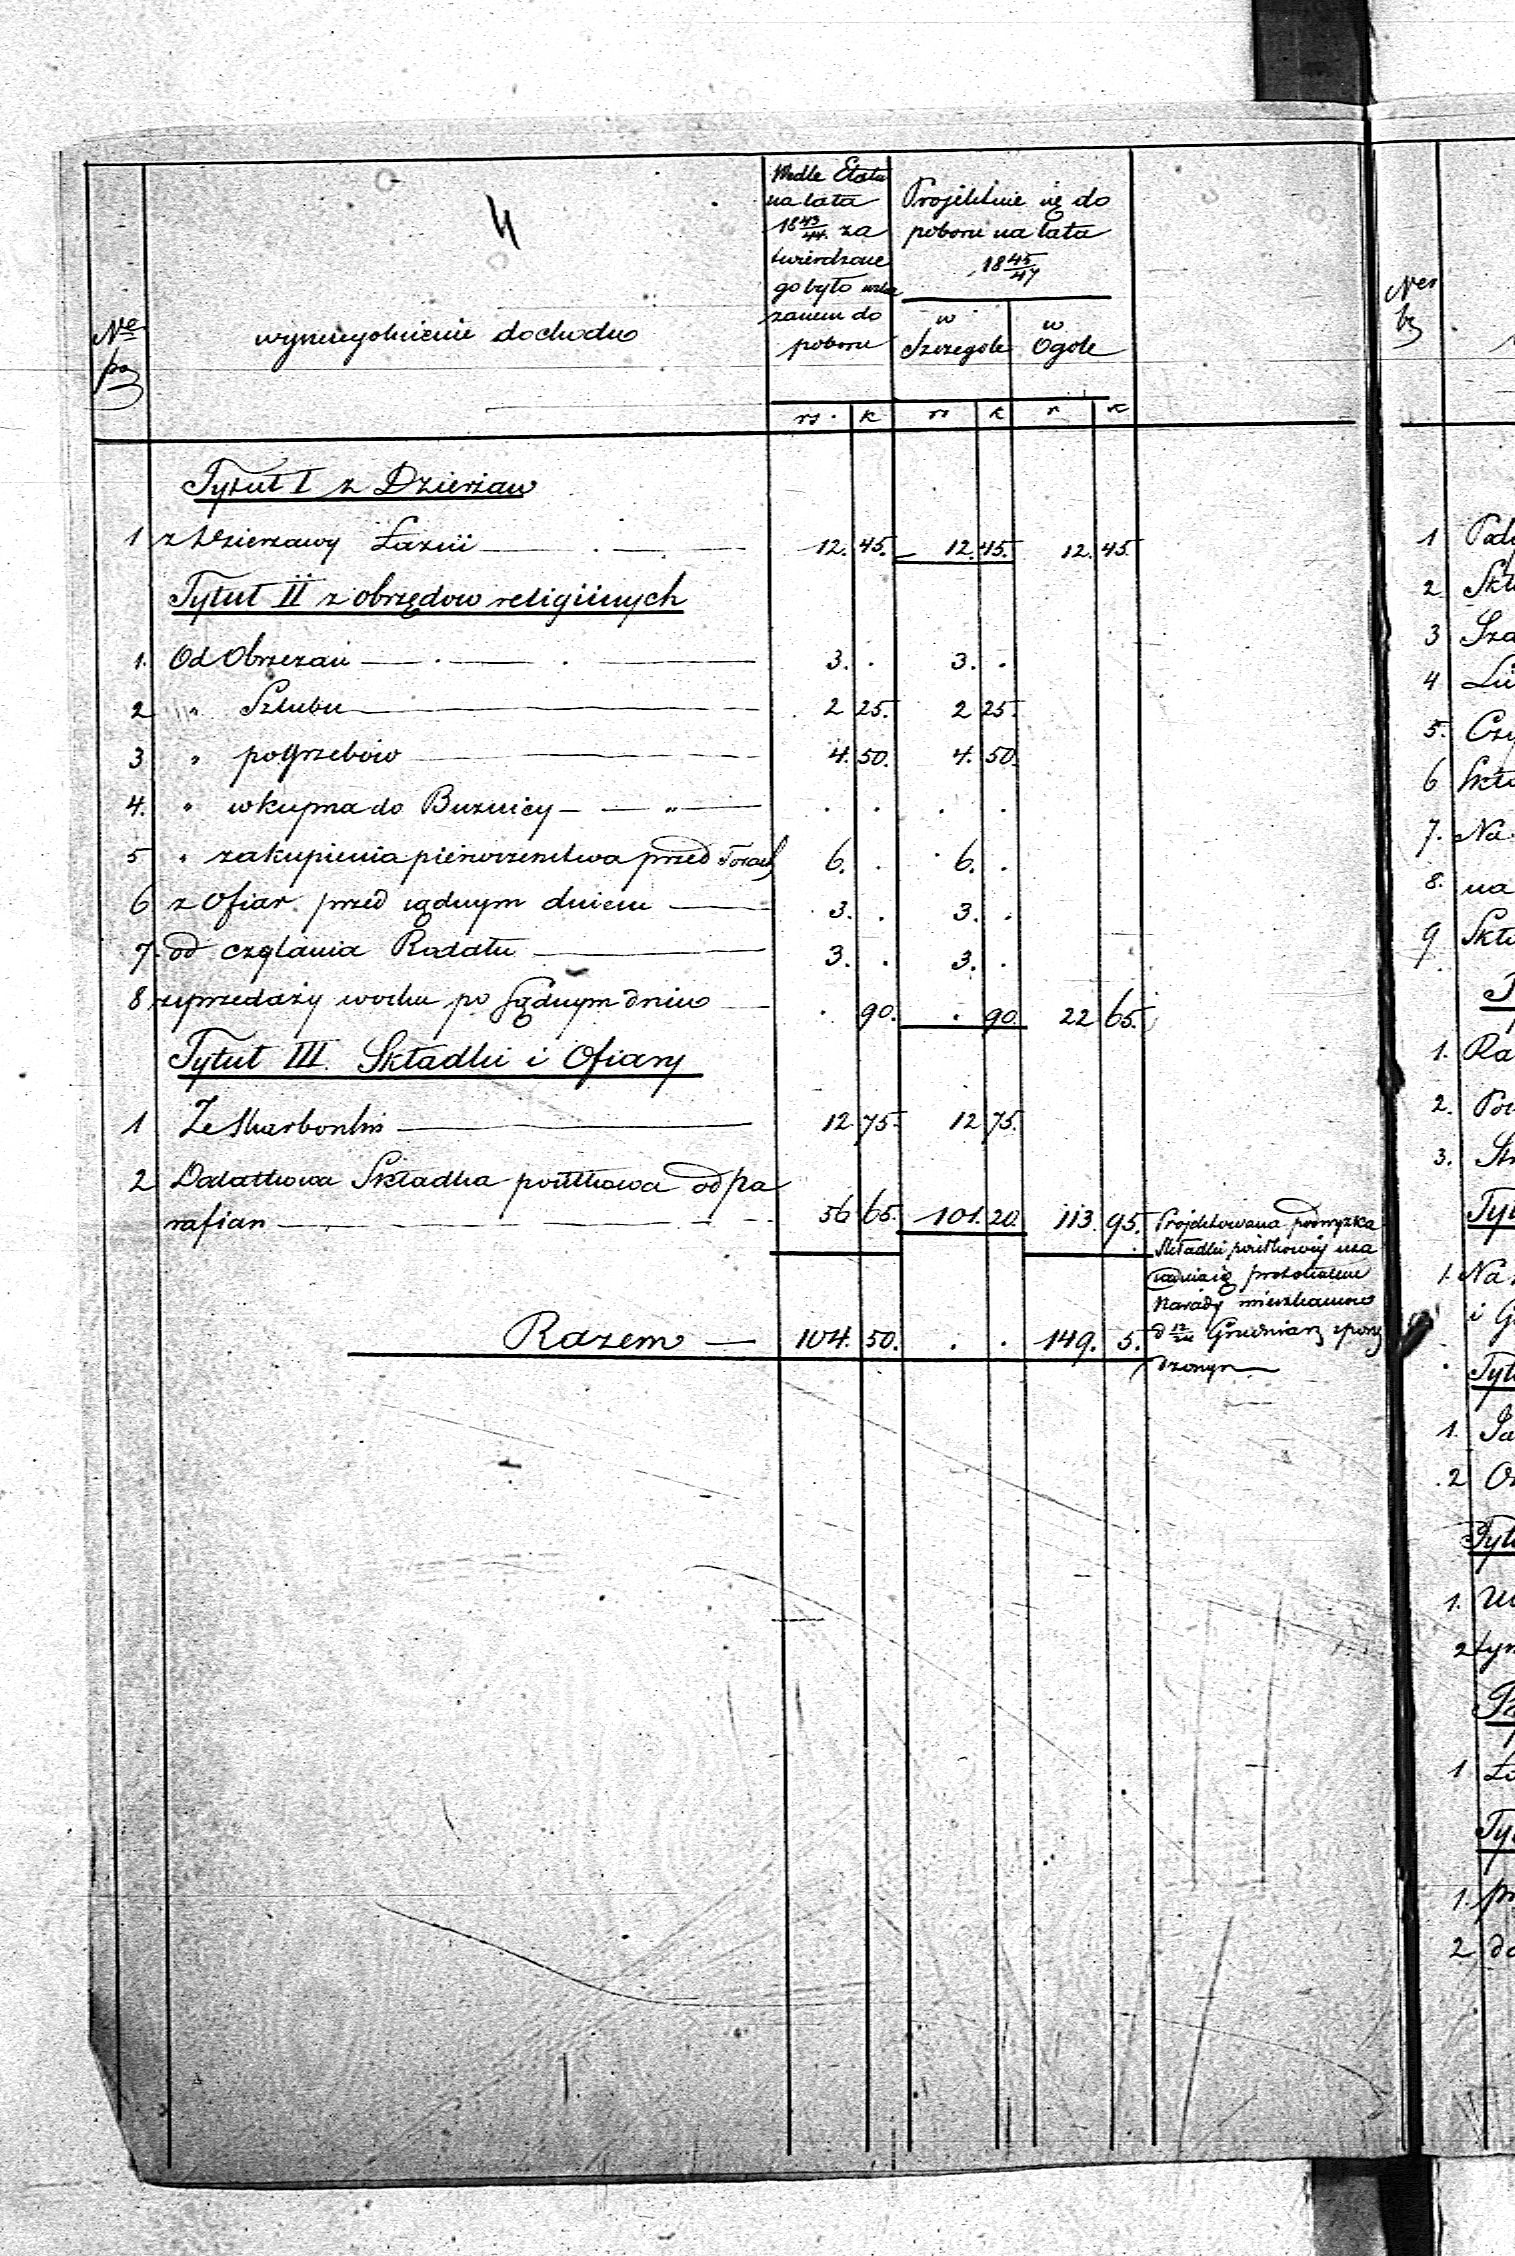 4
Ner
po
wyszczegolnienie dochodu
Wedle Etatu
na lata
18 43/44 za
twierdzone
go było wska
zanem do
poboru
Projektuie się do
poboru na lata
18 45/47
w
Szczegole
w
Ogole
rs. k rs k r k
Tytuł I z Dzierżaw
1 z Dzierzawy Łazni 12. 45. 12. 45. 12. 45.
Tytuł II z obrzędow religiinych
1. Od Obrzezań 3. . 3. .
2 " Szlubu 2 25. 2 25.
3 " pogrzebów 4. 50. 4. 50.
4. " wkupna do Buznicy . . . .
5 " zakupienia pierwszenstwa przed 6. . 6. .
6 z Ofiar przed sądnym dniem 3. . 3. .
7. od czÿtania Rodału 3. . 3. .
8 zeprzedaży wosku po Sądnym dniu . 90. . 90. 22 65.
Tytuł III. Składki i Ofiary
1 Ze Skarbonki 12 75. 12 75.
2 Dodatkowa Składka posiłkowa od pa
rafian 56 65. 101. 20. 113. 95.
Projektowana podwyzka
Składki posiłkowéj uza
sadnia się protokułem
Narady mieszkancow
d 12/24 Grudnia sporzą
dzonym
Razem 104. 50. . . 149. 5.
Ner
1
2 Skł
3
4
5. Czy
6 Skła
7. Na
8. na
9 Skła
1. Ra
2.
3.
Tyt
1. Na
i
Tyt
1.
2
Tyt
1.
2
1
Ty
1.
2 do